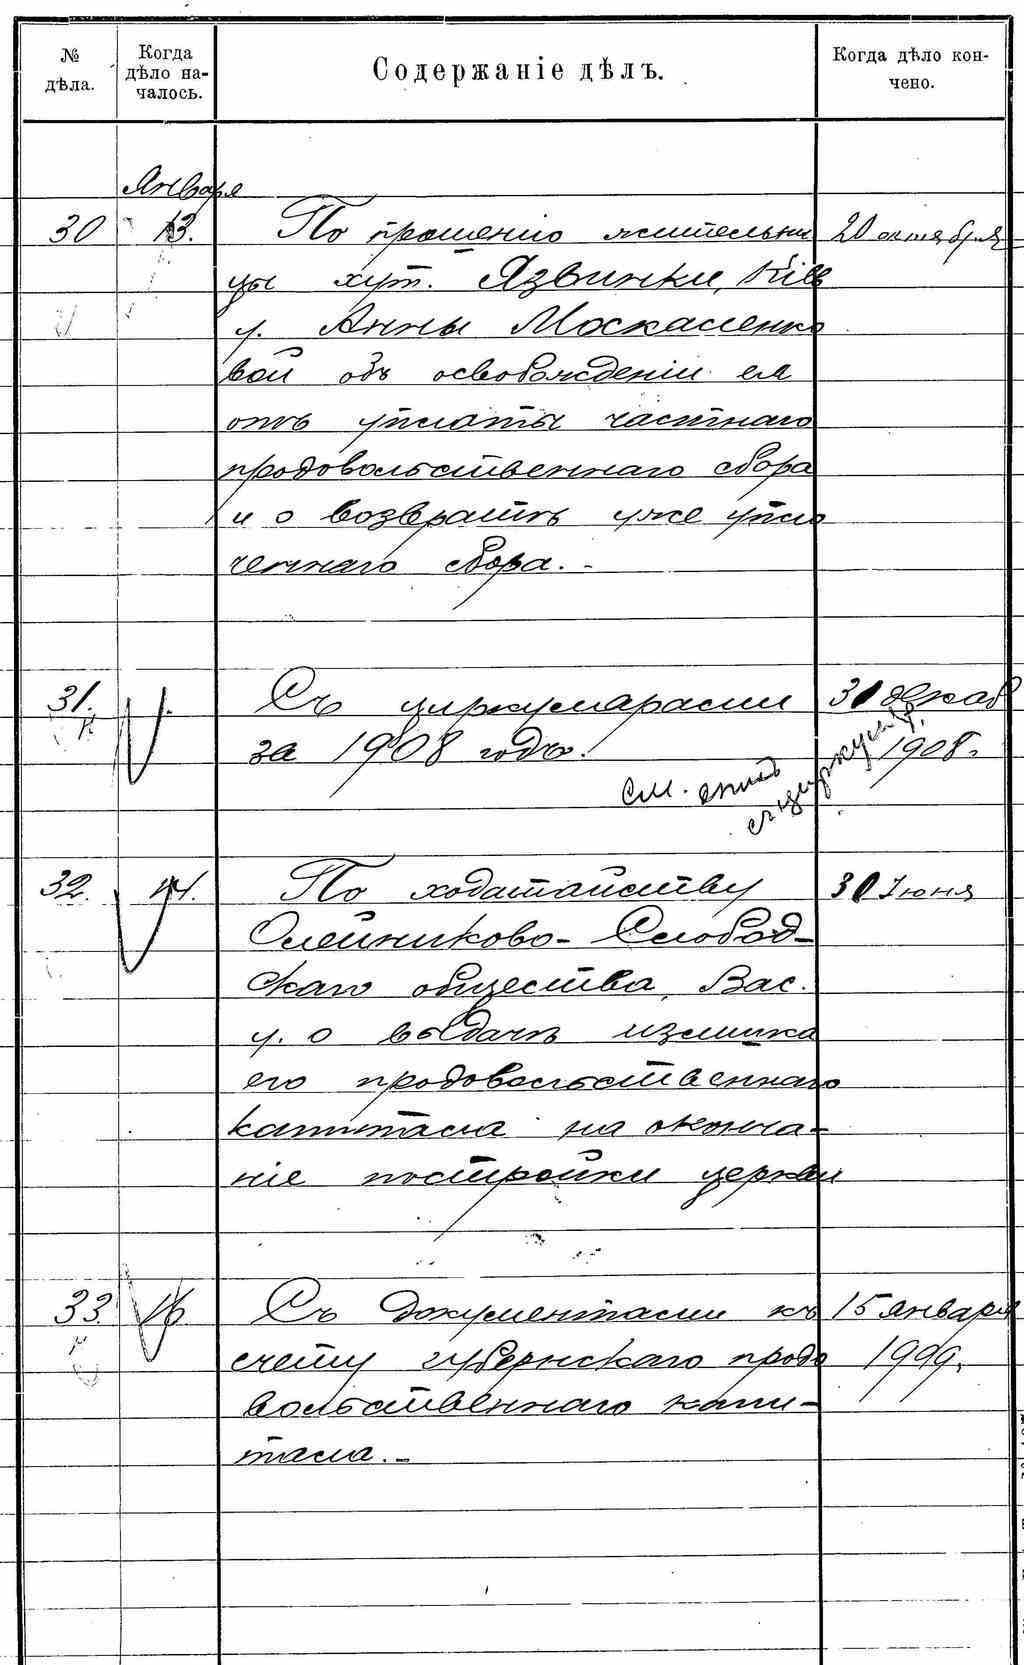 № дѣла.
Когда дѣло на-
чалось.
Содержаніе дѣлъ.
Когда дѣло кон-
чено.
Января
30 13. По прошенію жительни 20 октября
цы хут. Язвинки, Кіев
у. Анны Москаленко
вой объ освобожденіи ея
отъ уплаты частнаго
продовольственнаго сбора
и о возвратѣ уже упла
ченнаго сбора.
31. Съ циркулярами 31 декаб
за 1908 годъ. 1908.
См. опись
съ циркуляр.
32. 14. По ходатайству 30 Іюня
Олейниково-Слобод-
скаго общества, Вас.
у. о выдачѣ излишка
его продовольственнаго
капитала на оконча-
ніе постройки церкви
33. 16 Съ документами къ 15 января
счету губернскаго продо 1909.
вольственнаго капи-
тала.